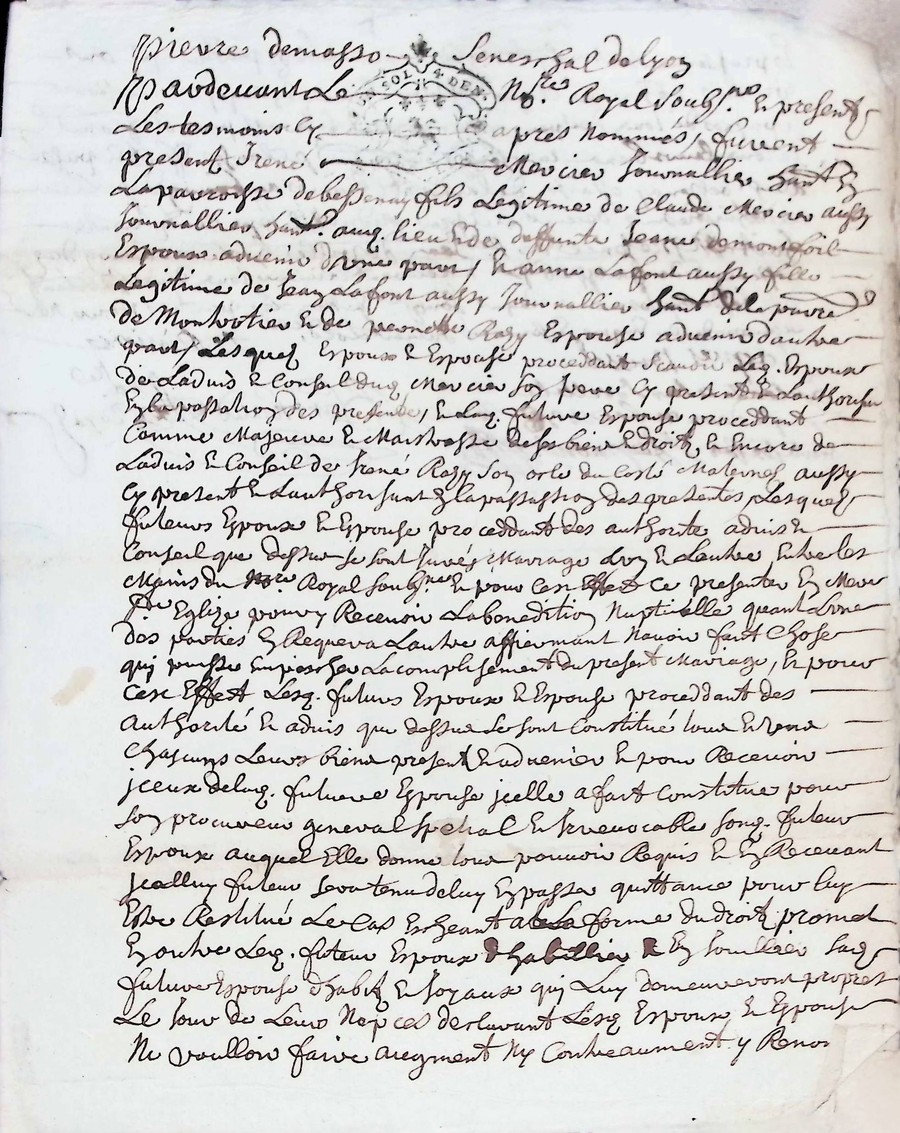 Pierre demasso Seneschal de Lyon
SOL 4 DEN.
Pardevant Le Nre. Royal Soubs.ne En presents
Les tesmoins Cy apres Nommés, furent
present Irené Mercier Journallier hant En
La parroisse de bessenay fils Legitime de Claude Mercier aussy
Journallier hant. auq. lieu & de deffunte Jeane demontfoil
Espoux advenir d'vne part, Et anne Lafont aussy fille
Legitime de Jean Lafont aussy Journallier hant dela parre
de Montrotier Et de pernette Razy Espouse advenir dautre
part, Lesquels Espoux & Espouse proceddant Scavoir Leq. Espoux
de Ladvis & Conseil duq Mercier son pere Cy present & Lauthorisan
En la passation des presentes, Et Laq. future Espouse proceddant
Comme Majeure Et Maistresse deses biens & droits, Et Encore de
Ladvis Et Conseil de Irené Razy Son oncle du Costé Maternel aussy
Cy present Et Lauthorisant En la passassion des presentes, Lesquels
futeurs Espoux Et Espouse proceddant des authorité advis Et
Conseil que dessus se sont Jurés Marriage Lvn Et Lautre Entre les
Mains du Nre. Royal Soubs.ne Et pour Cest Effet Ce presenter En Mere
Ste Eglize pour y Recevoir La benedition Nuptielle quant Lvne
des parties En Requera Lautre affiermant Navoir fait Chose
quy puisse Empescher Lacomplissement du present Marriage, Et pour
Cest Effect Lesq. futurs Espoux & Espouse proceddant des
Authorité Et advis que dessus se sont Constitué tous Et vns
Chascuns Leurs biens present & advenier Et pour Recevoir
jceux delaq. future Espouse jcelle a fait Constitue pour
Son procureur general special Et Irrevocable Sonq. futeur
Espoux auquel Elle donne tous pouvoir Requis Et En Recevant
Jcelluy futeur sera tenu deluy En passer quittance pour luy
Estre Restitué Le Cas Escheant a La forme du droit, promet
En outre Leq. futeur Espoux d'habillier & En Jouallier Laq.
future Espouse d'habits Et Joyaux quy Luy demeureront propres
Le Jour de Leurs Nopces declarant Lesq Espoux Et Espouse
Ne voulloir faire augment Ny Contreaument y Renon